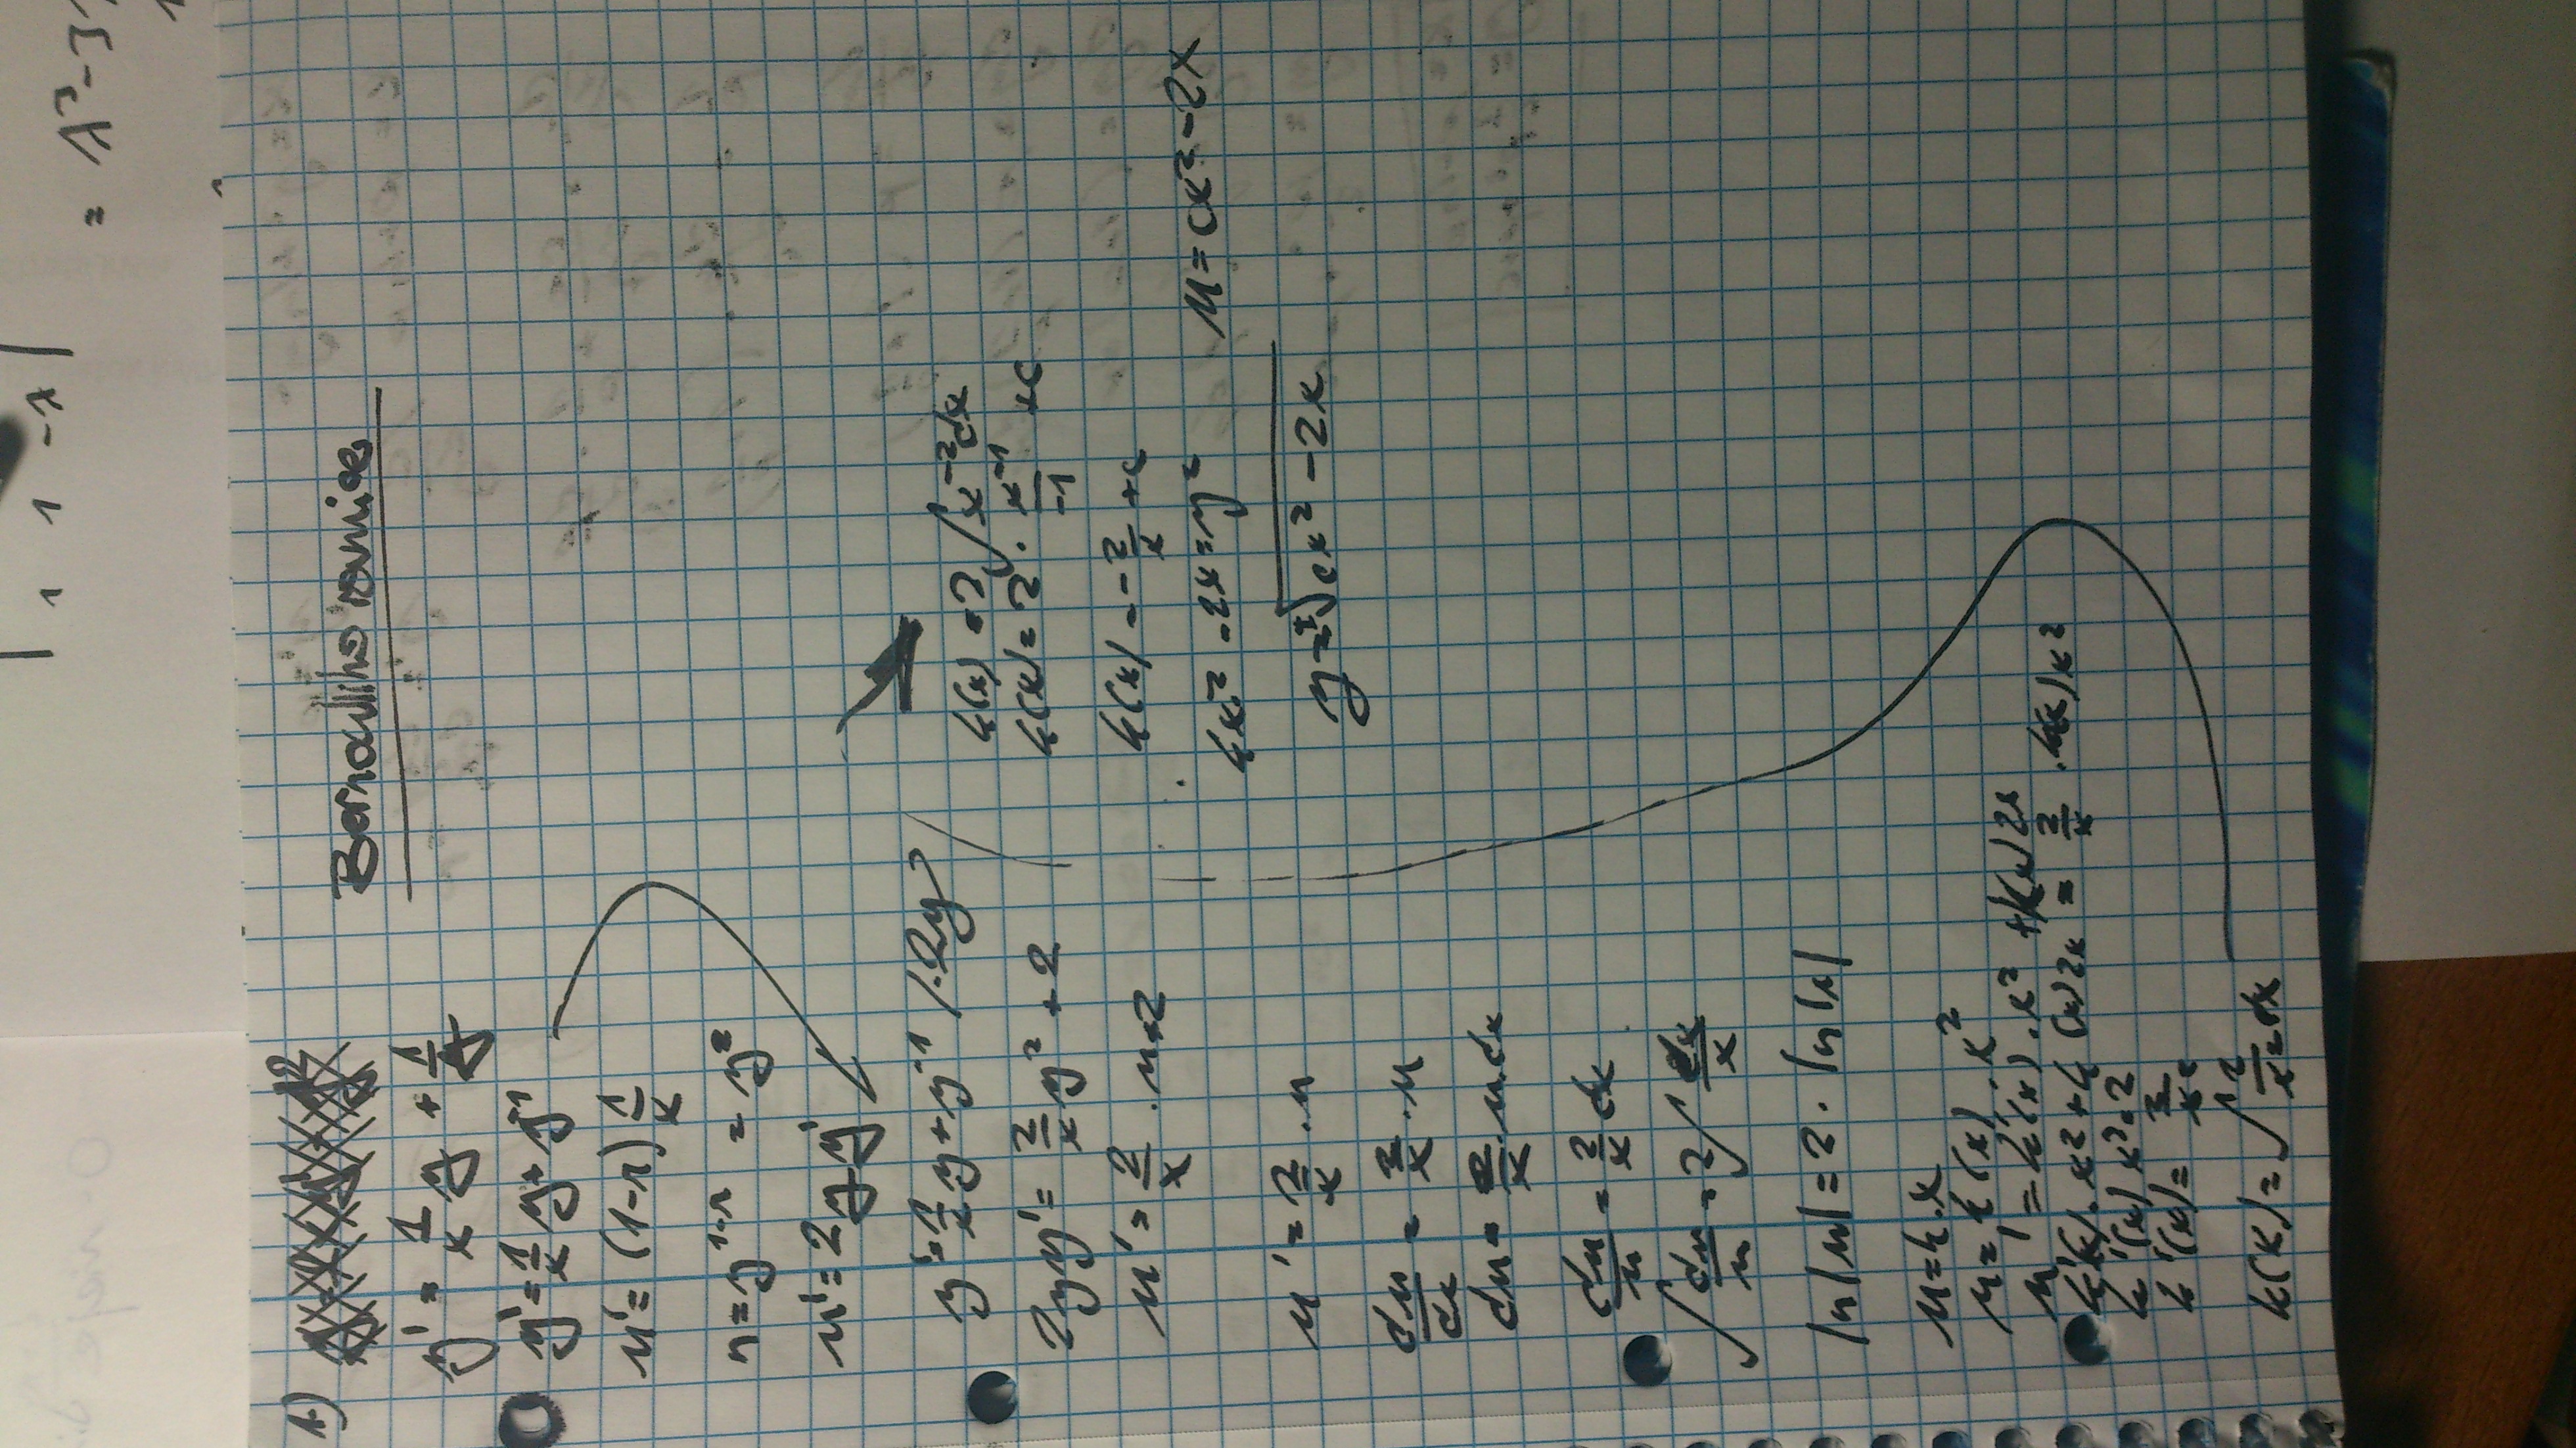 1 1 -λ
= λ³-3λ
1.)
Bernoulliho rovnice
y' = 1/x y + 1/y
y' = 1/x y + y⁻¹
u' = (1-r) 1/x
u = y¹⁻ʳ = y²
u' = 2yy'
y' = 1/x y + y⁻¹ /·2y
2yy' = 2/x y² + 2
u' = 2/x · u+2
u' = 2/x · u
du/dx = 2/x · u
du = 2/x · u · dx
du/u = 2/x dx
∫ du/u = 2∫ dx/x
ln|u| = 2 · ln|x|
u = k·x
u = k(x) · x²
u' = k'(x) · x² + k(x) 2x
k'(x) · x² + k(x) 2x = 2/x · k(x) x²
k'(x) x² = 2
k'(x) = 2/x²
k(x) = ∫ 2/x² dx
k(x) = 2∫x⁻² dx
k(x) = 2 · x⁻¹/-1 + c
k(x) = -2/x + c
kx² - 2x = y² u = cx² - 2x
y = ±√(cx² - 2x)